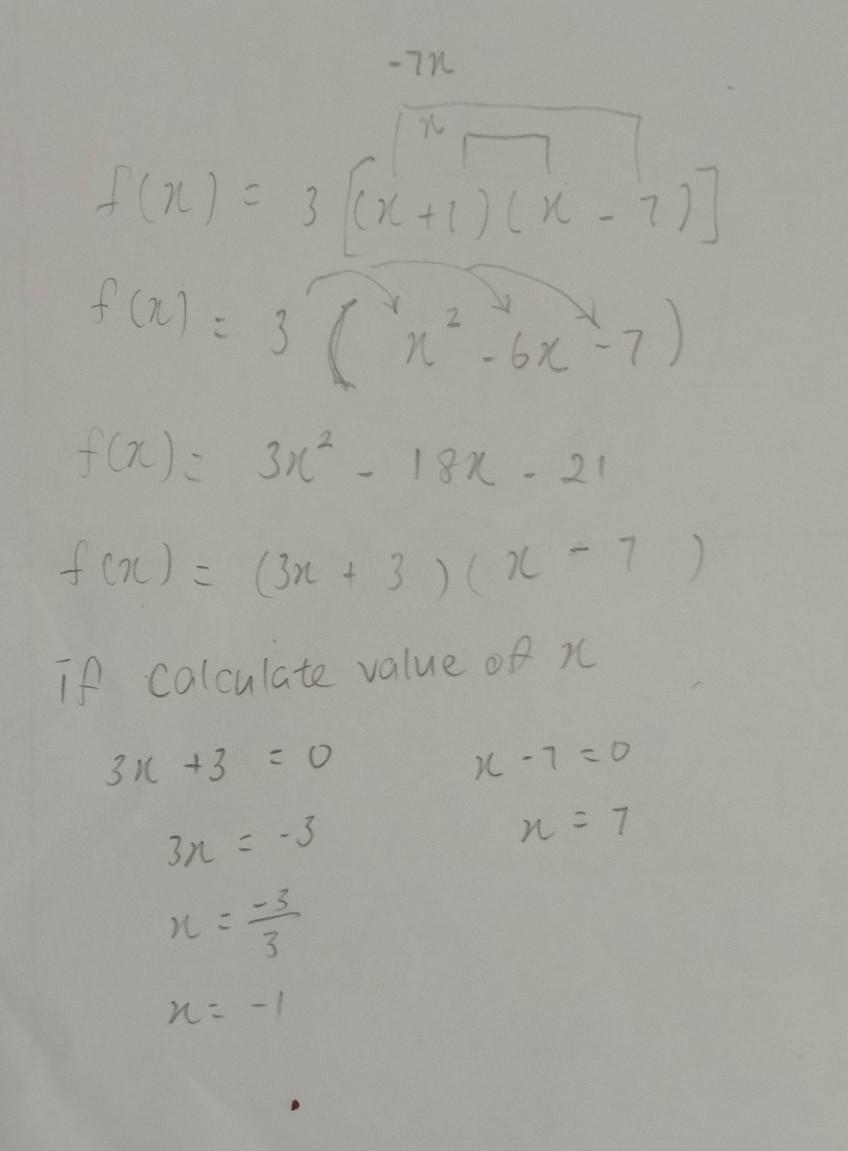 -7x
x
f(x) = 3 [(x+1)(x - 7)]
f(x) = 3 (x² - 6x - 7)
f(x) = 3x² - 18x - 21
f(x) = (3x + 3)(x - 7)
if calculate value of x
3x + 3 = 0 x - 7 = 0
3x = -3 x = 7
x = -3/3
x = -1